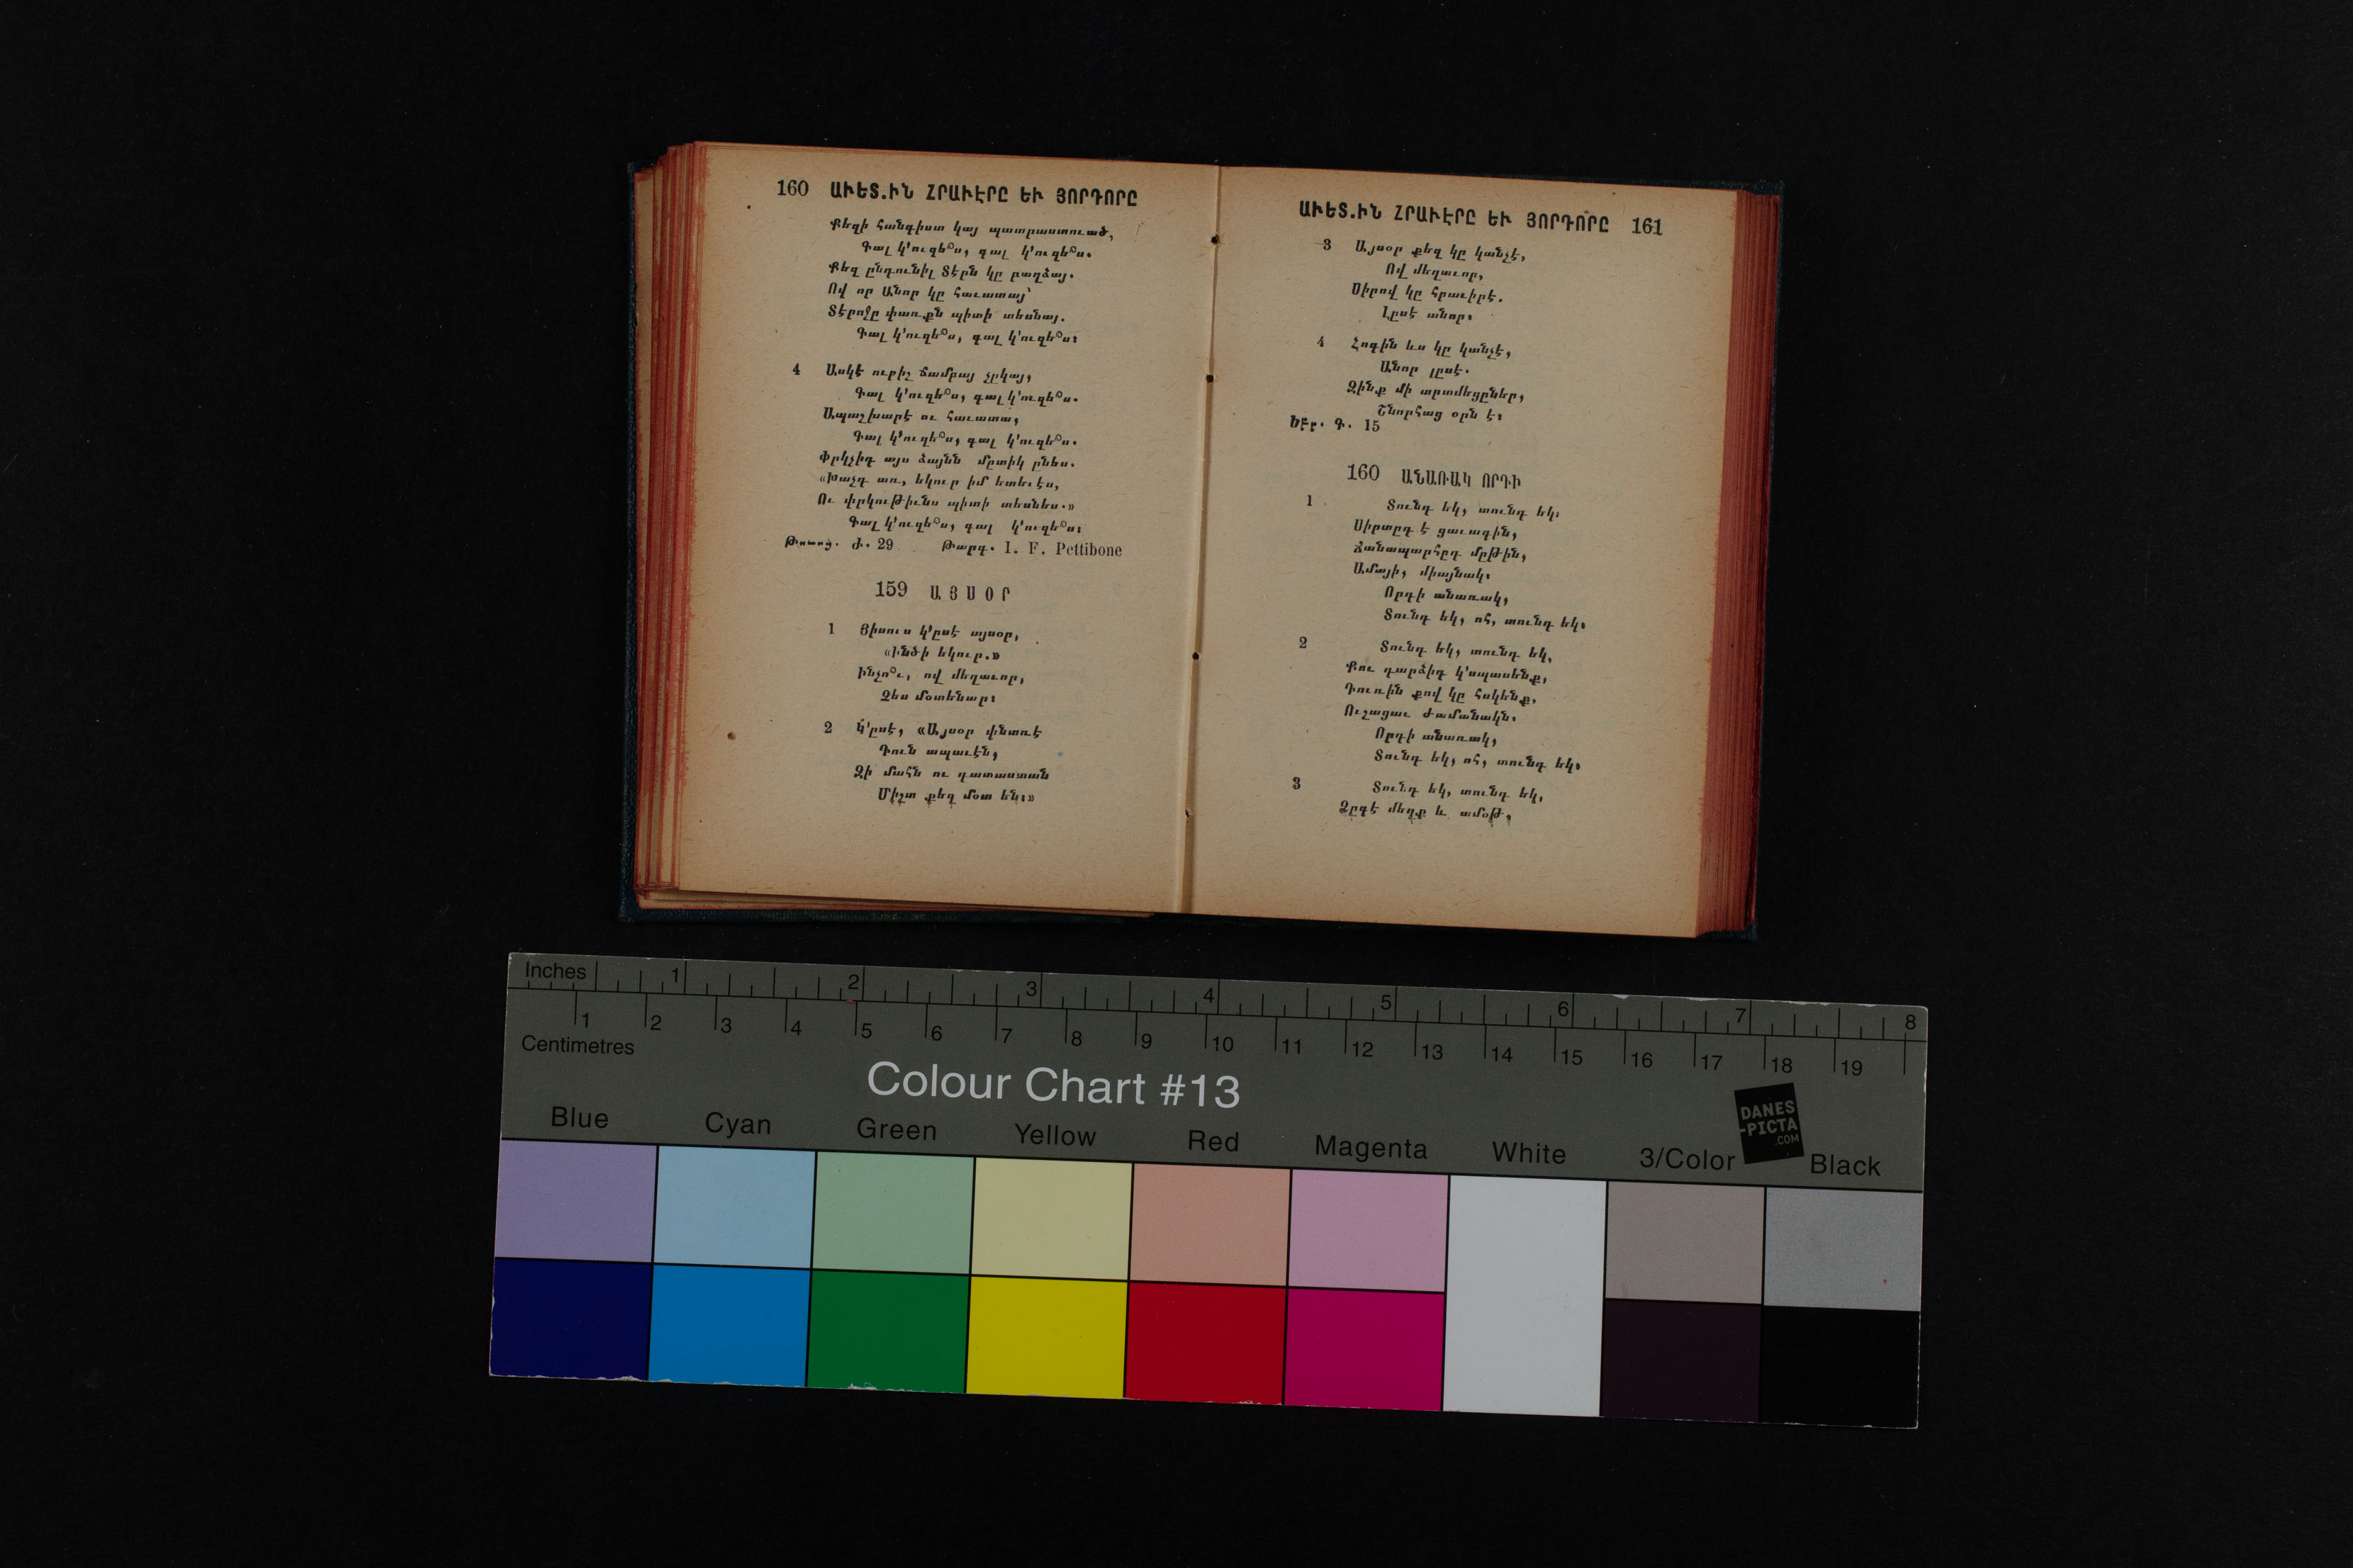 160 ԱՒԵՏ.ԻՆ ՀՐԱՒԷՐԸ ԵՒ ՅՈՐԴՈՐԸ
Քեզի հանգիստ կայ պատրաստուած,
Գալ կ՚ուզե՞ս, գալ կ՚ուզե՞ս.
Քեզ ընդունիլ Տէրն կը բաղձայ.
Ով որ Անոր կը հաւատայ՝
Տէրոջը փառքն պիտի տեսնայ.
Գալ կ՚ուզե՞ս, գալ կ՚ուզե՞ս:
4 Ասկէ ուրիշ ճամբայ չըկայ,
Գալ կ՚ուզե՞ս, գալ կ՚ուզե՞ս.
Ապաշխարէ ու հաւատա,
Գալ կ՚ուզե՞ս, գալ կ՚ուզե՞ս.
Փրկչիդ այս ձայնն մըտիկ ընես.
«Խաչդ առ, եկուր իմ ետեւէս,
Ու փրկութիւնս պիտի տեսնես.»
Գալ կ՚ուզե՞ս, գալ կ՚ուզե՞ս:
Ժ. 29 Թարգ. I. F. Pettibone
159 ԱՅՍՕՐ
1 Յիսուս կ՚ըսէ այսօր,
«Ինծի եկուր.»
Ինչո՞ւ, ով մեղաւոր,
Չես մօտենար:
2 Կ՚ըսէ, «Այսօր փնտռէ
Դուն ապաւէն,
Զի մահն ու դատաստան
Միշտ քեզ մօտ են:»
ԱՒԵՏ.ԻՆ ՀՐԱՒԷՐԸ ԵՒ ՅՈՐԴՈՐԸ 161
3 Այսօր քեզ կը կանչէ,
Ով մեղաւոր,
Սիրով կը հրաւիրէ.
Լըսէ անոր:
4 Հոգին ևս կը կանչէ,
Անոր լըսէ.
Զինք մի տրտմեցըներ,
Շնորհաց օրն է:
Եբր. Գ. 15
160 ԱՆԱՌԱԿ ՈՐԴԻ
1 Տունդ եկ, տունդ եկ:
Սիրտըդ է ցաւագին,
Ճանապարհըդ մըթին,
Ամայի, միայնակ:
Որդի անառակ,
Տունդ եկ, ոհ, տունդ եկ:
2 Տունդ եկ, տունդ եկ,
Քու դարձիդ կ՚սպասենք,
Դուռին քով կը հսկենք,
Ուշացաւ ժամանակն:
Որդի անառակ,
Տունդ եկ, ոհ, տունդ եկ:
3 Տունդ եկ, տունդ եկ,
Ձըգէ մեղք և ամօթ,
Inches 1 2 3 4 5 6 7 8
1 2 3 4 5 6 7 8 9 10 11 12 13 14 15 16 17 18 19
Centimetres
Colour Chart #13
DANES
-PICTA
.COM
Blue Cyan Green Yellow Red Magenta White 3/Color Black